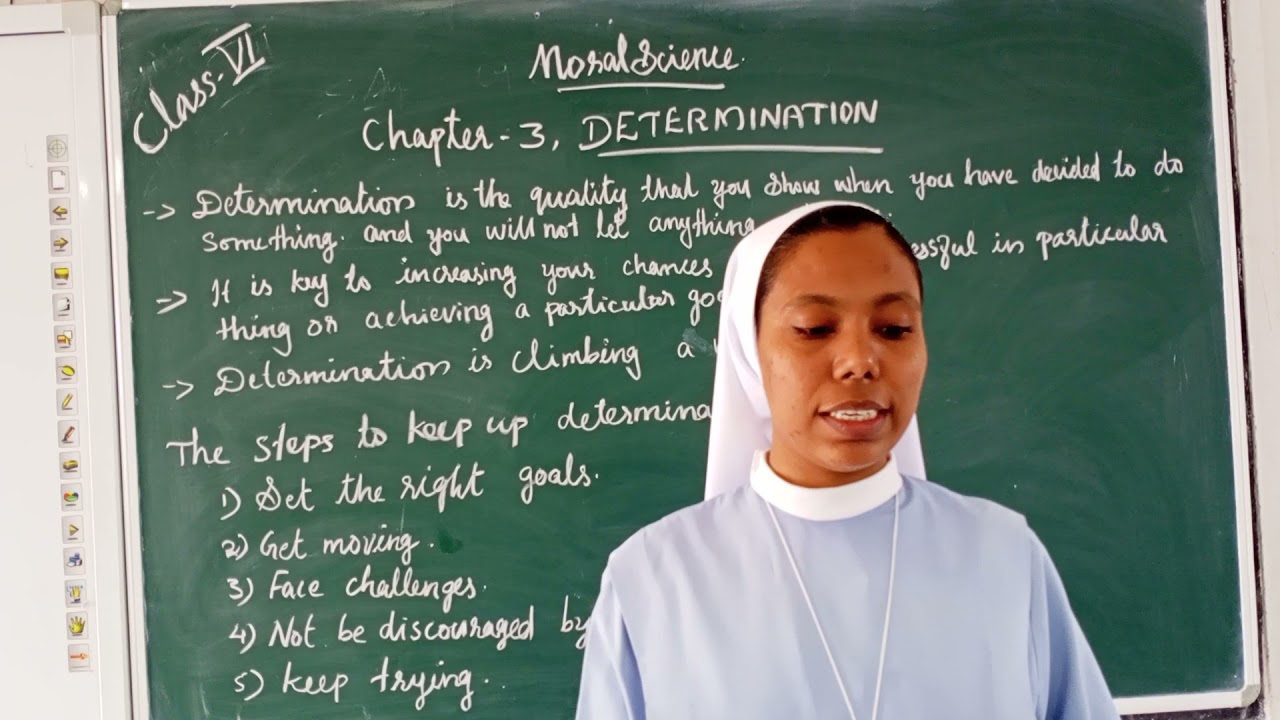 Class-VI
Moral Science.
Chapter-3, DETERMINATION
-> Determination is the quality that you show when you have decided to do
something. and you will not let anything
-> It is key to increasing your chances in particular
thing or achieving a particular
-> Determination is climbing a
The steps to keep up
1) Set the right goals.
2) Get moving.
3) Face challenges.
4) Not be discouraged by
5) keep trying.